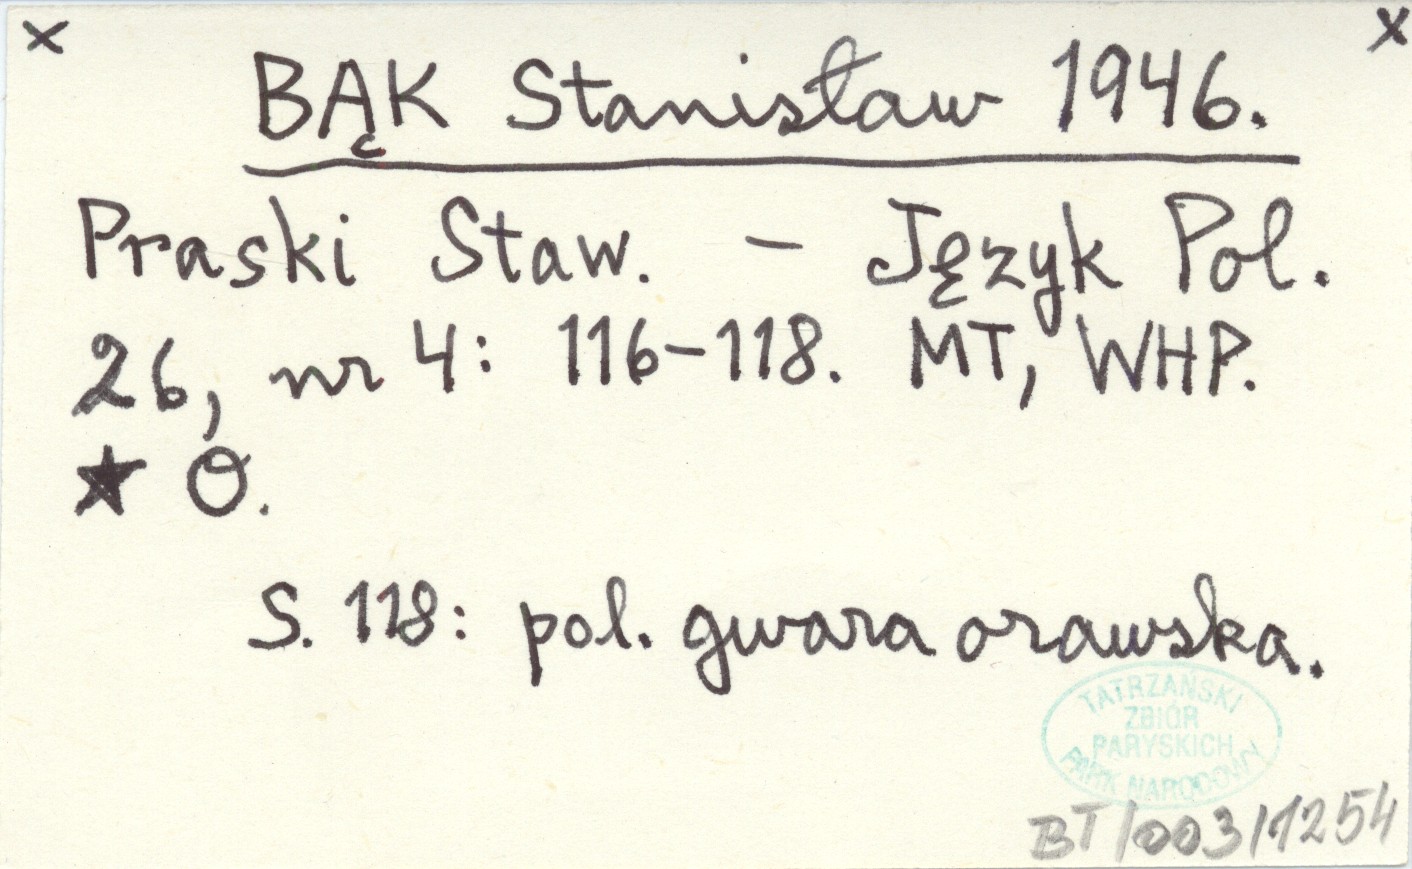 x x
BĄK Stanisław 1946.
Praski Staw. – Język Pol.
26, nr 4: 116–118. MT, WHP.
★ O.
S. 118: pol. gwara orawska.
TATRZAŃSKI
ZBIÓR
PARYSKICH
PARK NARODOWY
BT/003/1254